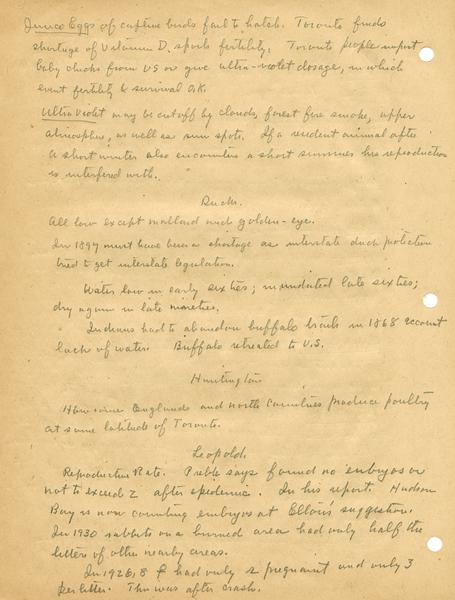 Junco Eggs of captive birds fail to hatch. Toronto finds
shortage of Vitamin D, spoils fertility. Toronto people import
baby chicks from US or give ultra-violet dosage, in which
event fertility & survival O.K.
Ultra Violet may be cut off by clouds, forest fire smoke, upper
atmosphere, as well as sun spots. If a resident animal after
a short winter also encounters a short summer his reproduction
is interfered with.
Ducks.
All low except mallard and golden-eye.
In 1897 must have been a shortage as interstate duck protection
tried to get interstate legislation.
Water low in early sixties; inundated late sixties;
dry again in late nineties.
Indians had to abandon buffalo trails in 1868 account
lack of water. Buffalo retreated to U.S.
Huntington
How come England and north countries produce poultry
at same latitude of Toronto.
Leopold.
Reproductive Rate. Preble says found no embryos or
not to exceed 2 after epidemic. In his report. Hudson
Bay is now counting embryos at Elton's suggestion.
In 1930 rabbits on a burned area had only half the
litters of other nearby areas.
In 1926, 8 ♀ had only 2 pregnant and only 3
per litter. This was after crash.